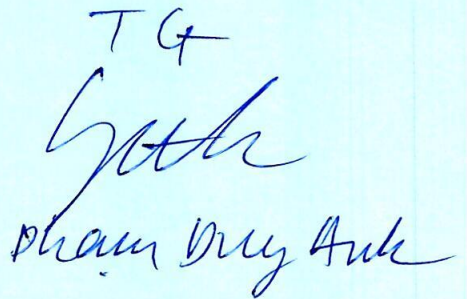 TG
Phạm Duy Anh